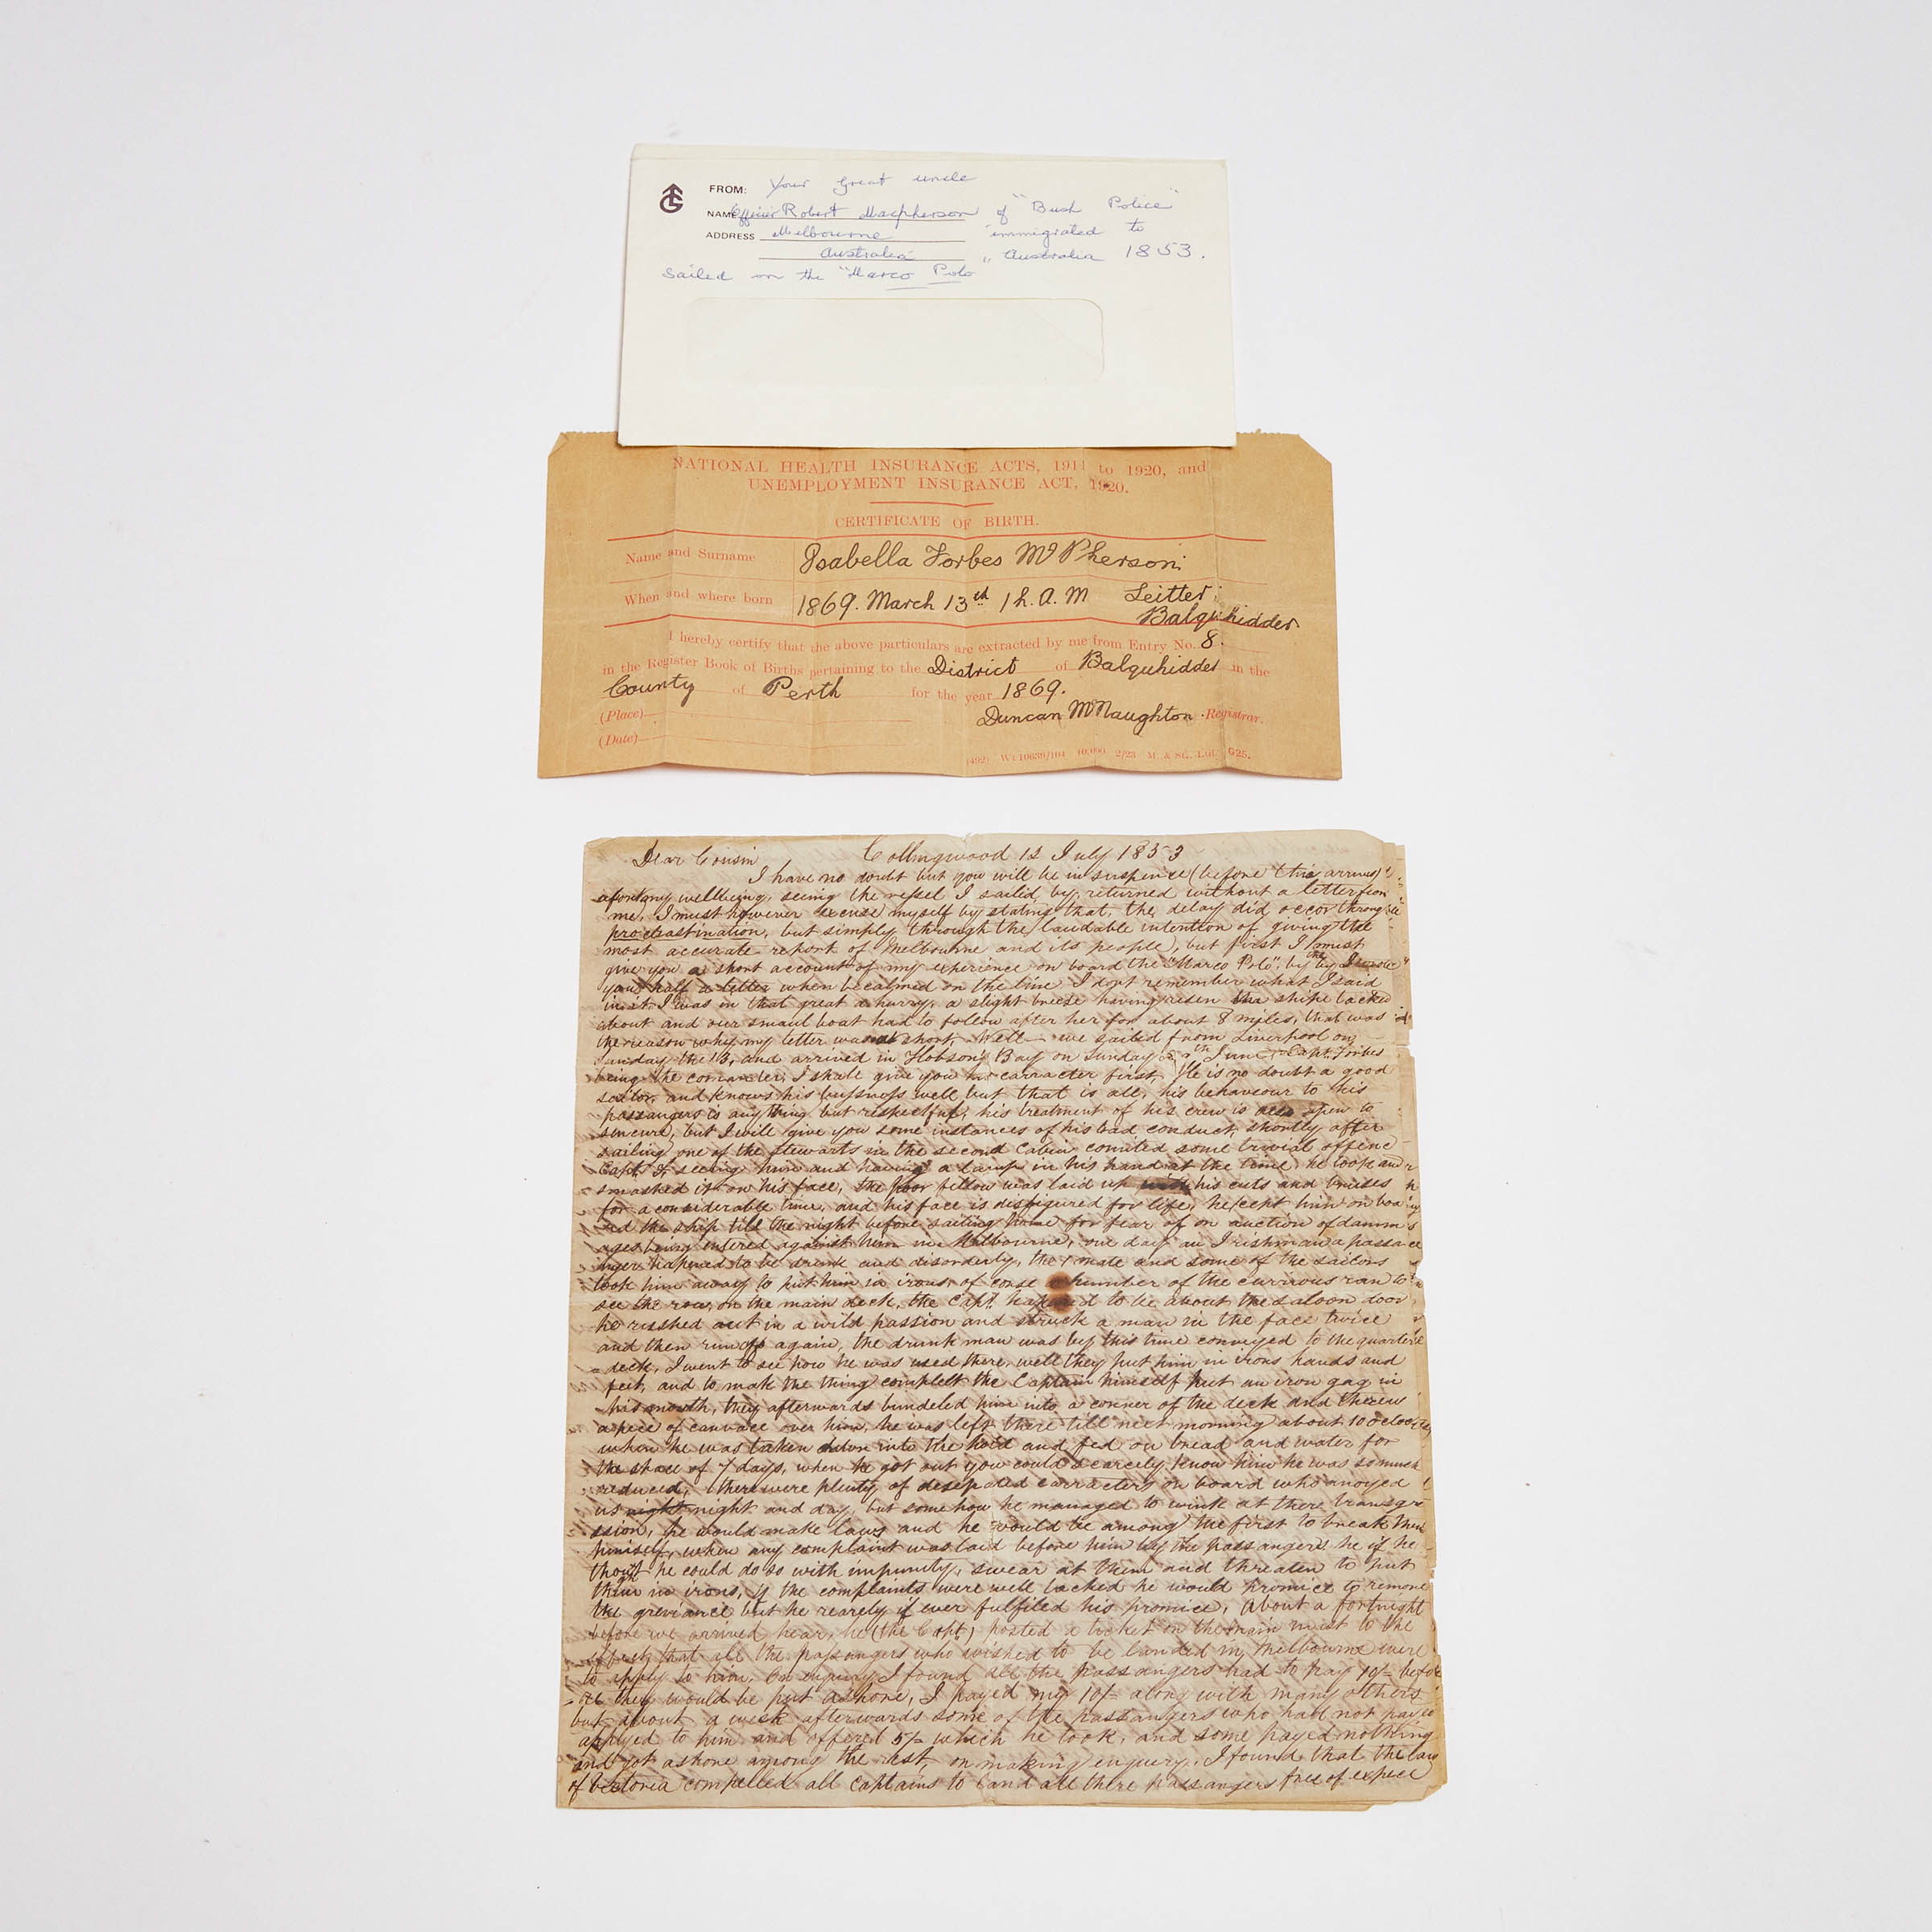 FROM: Your great uncle
NAME Officer Robert Macpherson of "Bush Police"
ADDRESS Melbourne immigrated to
Australia " Australia 1853.
Sailed on the "Marco Polo
NATIONAL HEALTH INSURANCE ACTS, 1911 to 1920, and
UNEMPLOYMENT INSURANCE ACT, 1920.
CERTIFICATE OF BIRTH.
Name and Surname Isabella Forbes McPherson
When and where born 1869. March 13th 1 h. A. M Leitter
Balquhidder
I hereby certify that the above particulars are extracted by me from Entry No. 8.
in the Register Book of Births pertaining to the District of Balquhidder in the
County of Perth for the year 1869.
(Place) Duncan McNaughton Registrar.
(Date)
(492) Wt.10639/104 10,000 2/23 M. & SC. Ltd. G25.
Dear Cousin Collingwood 12 July 1853
I have no doubt but you will be in suspence (before this arrives)
about my wellbeing, seeing the vessel I sailed by, returned without a letter from
me, I must however excuse myself by stating that, the delay did occor through
procrastination, but simply through the laudable intention of giving the
most accurate report of Melbourne and its people, but first I must
give you a short account of my experience on board the "Marco Polo", by the by I wrote
you half a letter when becalmed on the line I dont remember what I said
in it I was in that great a hurry, a slight breese having risen the ship tacked
about and our small boat had to follow after her for about 8 miles, that was
the reason why my letter was short, Well we sailed from Liverpool on
Sunday the 13, and arrived in Hobson's Bay on Sunday June, Capt. Forbes
being the comander, I shall give you his carracter first, He is no doubt a good
sailor, and knows his bussness well but that is all, his behaviour to his
passangers is any thing but respectful, his treatment of his crew is also open to
sencure, but I will give you some instances of his bad conduct, shortly after
sailing one of the stewarts in the second Cabin comited some trivial offenc
Capt. F seeing him and having a lamp in his hand at the time, he took and
smashed it on his face, the poor fellow was laid up with his cuts and bruises
for a considerable time, and his face is disfigured for life, he kept him on boa
rd the ship till the night before sailing home for fear of on auction of damm
ages being entered against him in Melbourne, one day an Irishman a passa
nger hapened to be drunk and disorderly, the 1 mate and some of the sailors
took him away to put him in irons, of corse a number of the currious ran to
see the row, on the main deck, the Capt. hapened to be about the saloon door
he russhed out in a wild passion and struck a man in the face twice
and then run off again, the drunk man was by this time conveyed to the quarter
deck, I went to see how he was used there, well they put him in irons hands and
feet, and to make the thing complett the Captain himself put an iron gag in
his mouth, they afterwards bundeled him into a corner of the deck and threw
a piece of canvace over him, he was left there till next morning about 10 oclock
when he was taken down into the hold and fed on bread and water for
the space of 7 days, when he got out you could scarcely know him he was so much
reduced, there were plenty of desperated carracters on board who anoyed
us night night and day, but some how he managed to wink at there transgre
ssion, he would make laws and he would be among the first to break them
himself, when any complaint was laid before him by the passangers he if he
thought he could do so with impunity, swear at them and threaten to put
them in irons, if the complaints were well backed he would promice to remove
the greviance but he rearely if ever fulfiled his promice, about a fortnight
before we arrived hear, he (the Capt) posted a ticket on the main mast to the
effect, that all the passangers who wished to be landed in Melbourne were
to apply to him, on enquiry I found all the passangers had to pay 10/- befor
they would be put ashore, I payed my 10/- along with many others
but about a week afterwards some of the passangers who had not payed
applyed to him and offered 5/- which he took, and some payed nothing
and got ashore among the rest, on making enquiry, I found that the law
of Victoria compelled all captains to land all there passangers free of expec